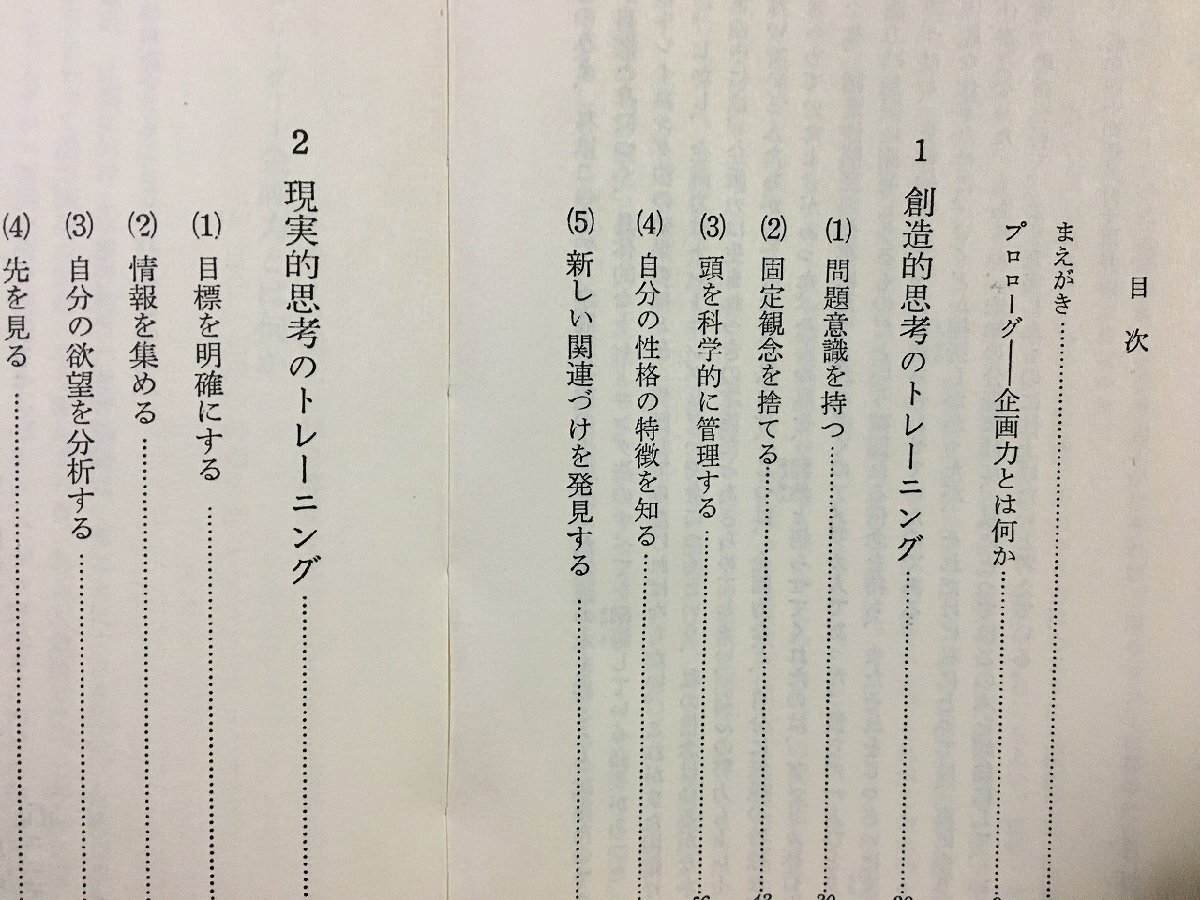 目次
まえがき
プロローグ――企画力とは何か
1 創造的思考のトレーニング
(1) 問題意識を持つ
(2) 固定観念を捨てる
(3) 頭を科学的に管理する
(4) 自分の性格の特徴を知る
(5) 新しい関連づけを発見する
2 現実的思考のトレーニング
(1) 目標を明確にする
(2) 情報を集める
(3) 自分の欲望を分析する
(4) 先を見る